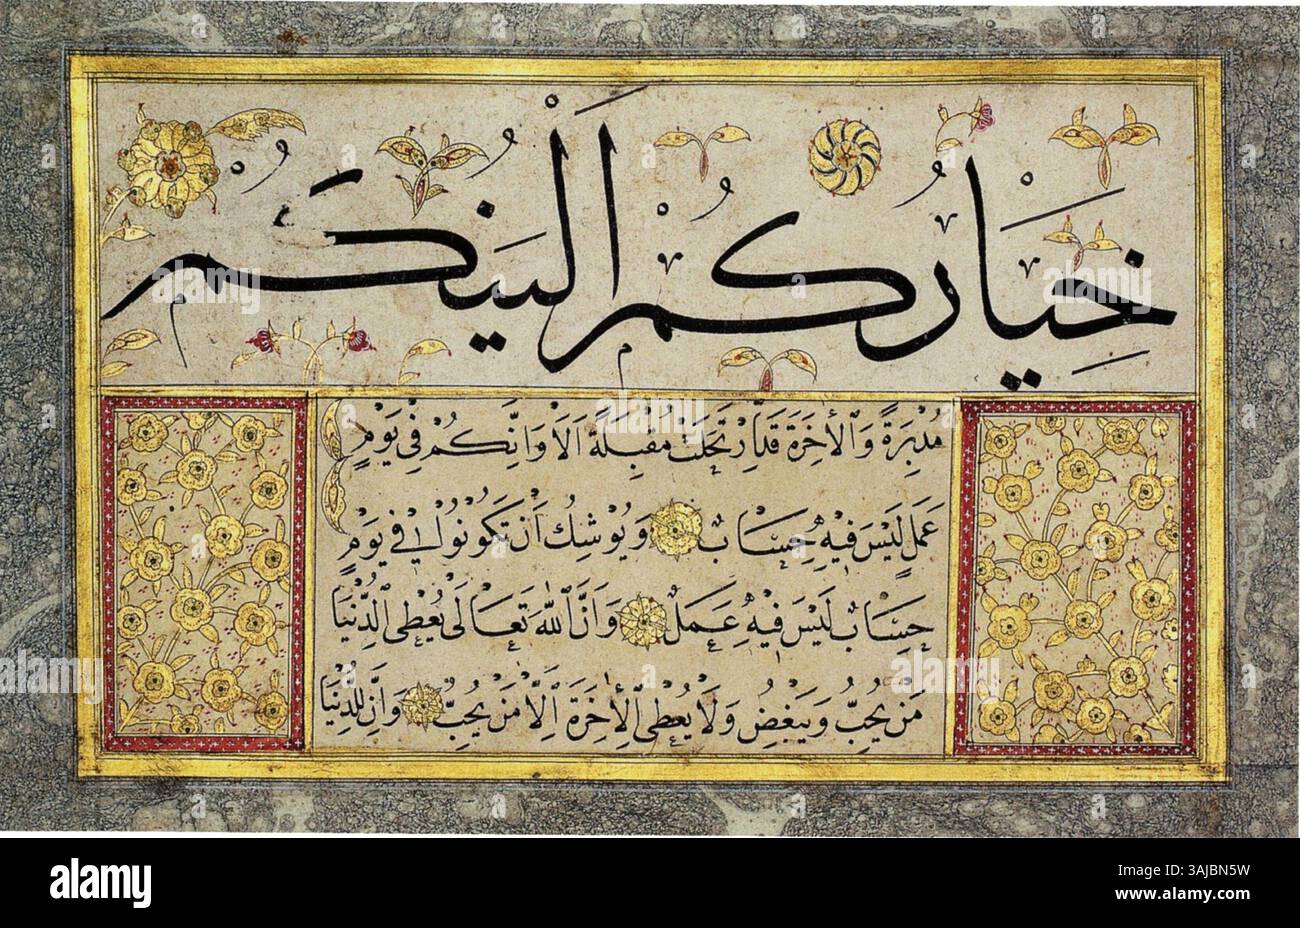 خِيَارُكُمْ اَلْيَنُكُمْ
مُدْبِرَةً وَالْاٰخِرَةَ قَدْ تَحَمَّلَتْ مُقْبِلَةً اَلَا وَاِنَّكُمْ فِي يَوْمِ
عَمَلٍ لَيْسَ فِيهِ حِسَابٌ وَيُوشِكُ اَنْ تَكُونُوا فِي يَوْمِ
حِسَابٍ لَيْسَ فِيهِ عَمَلٌ وَاَنَّ اللّٰهَ تَعَالٰى يُعْطِي الدُّنْيَا
مَنْ يُحِبُّ وَيَبْغَضُ وَلَا يُعْطِي الْاٰخِرَةَ اِلَّا مَنْ يُحِبُّ وَاِنَّ لِلدُّنْيَا
alamy
Image ID: 3AJBN5W
www.alamy.com